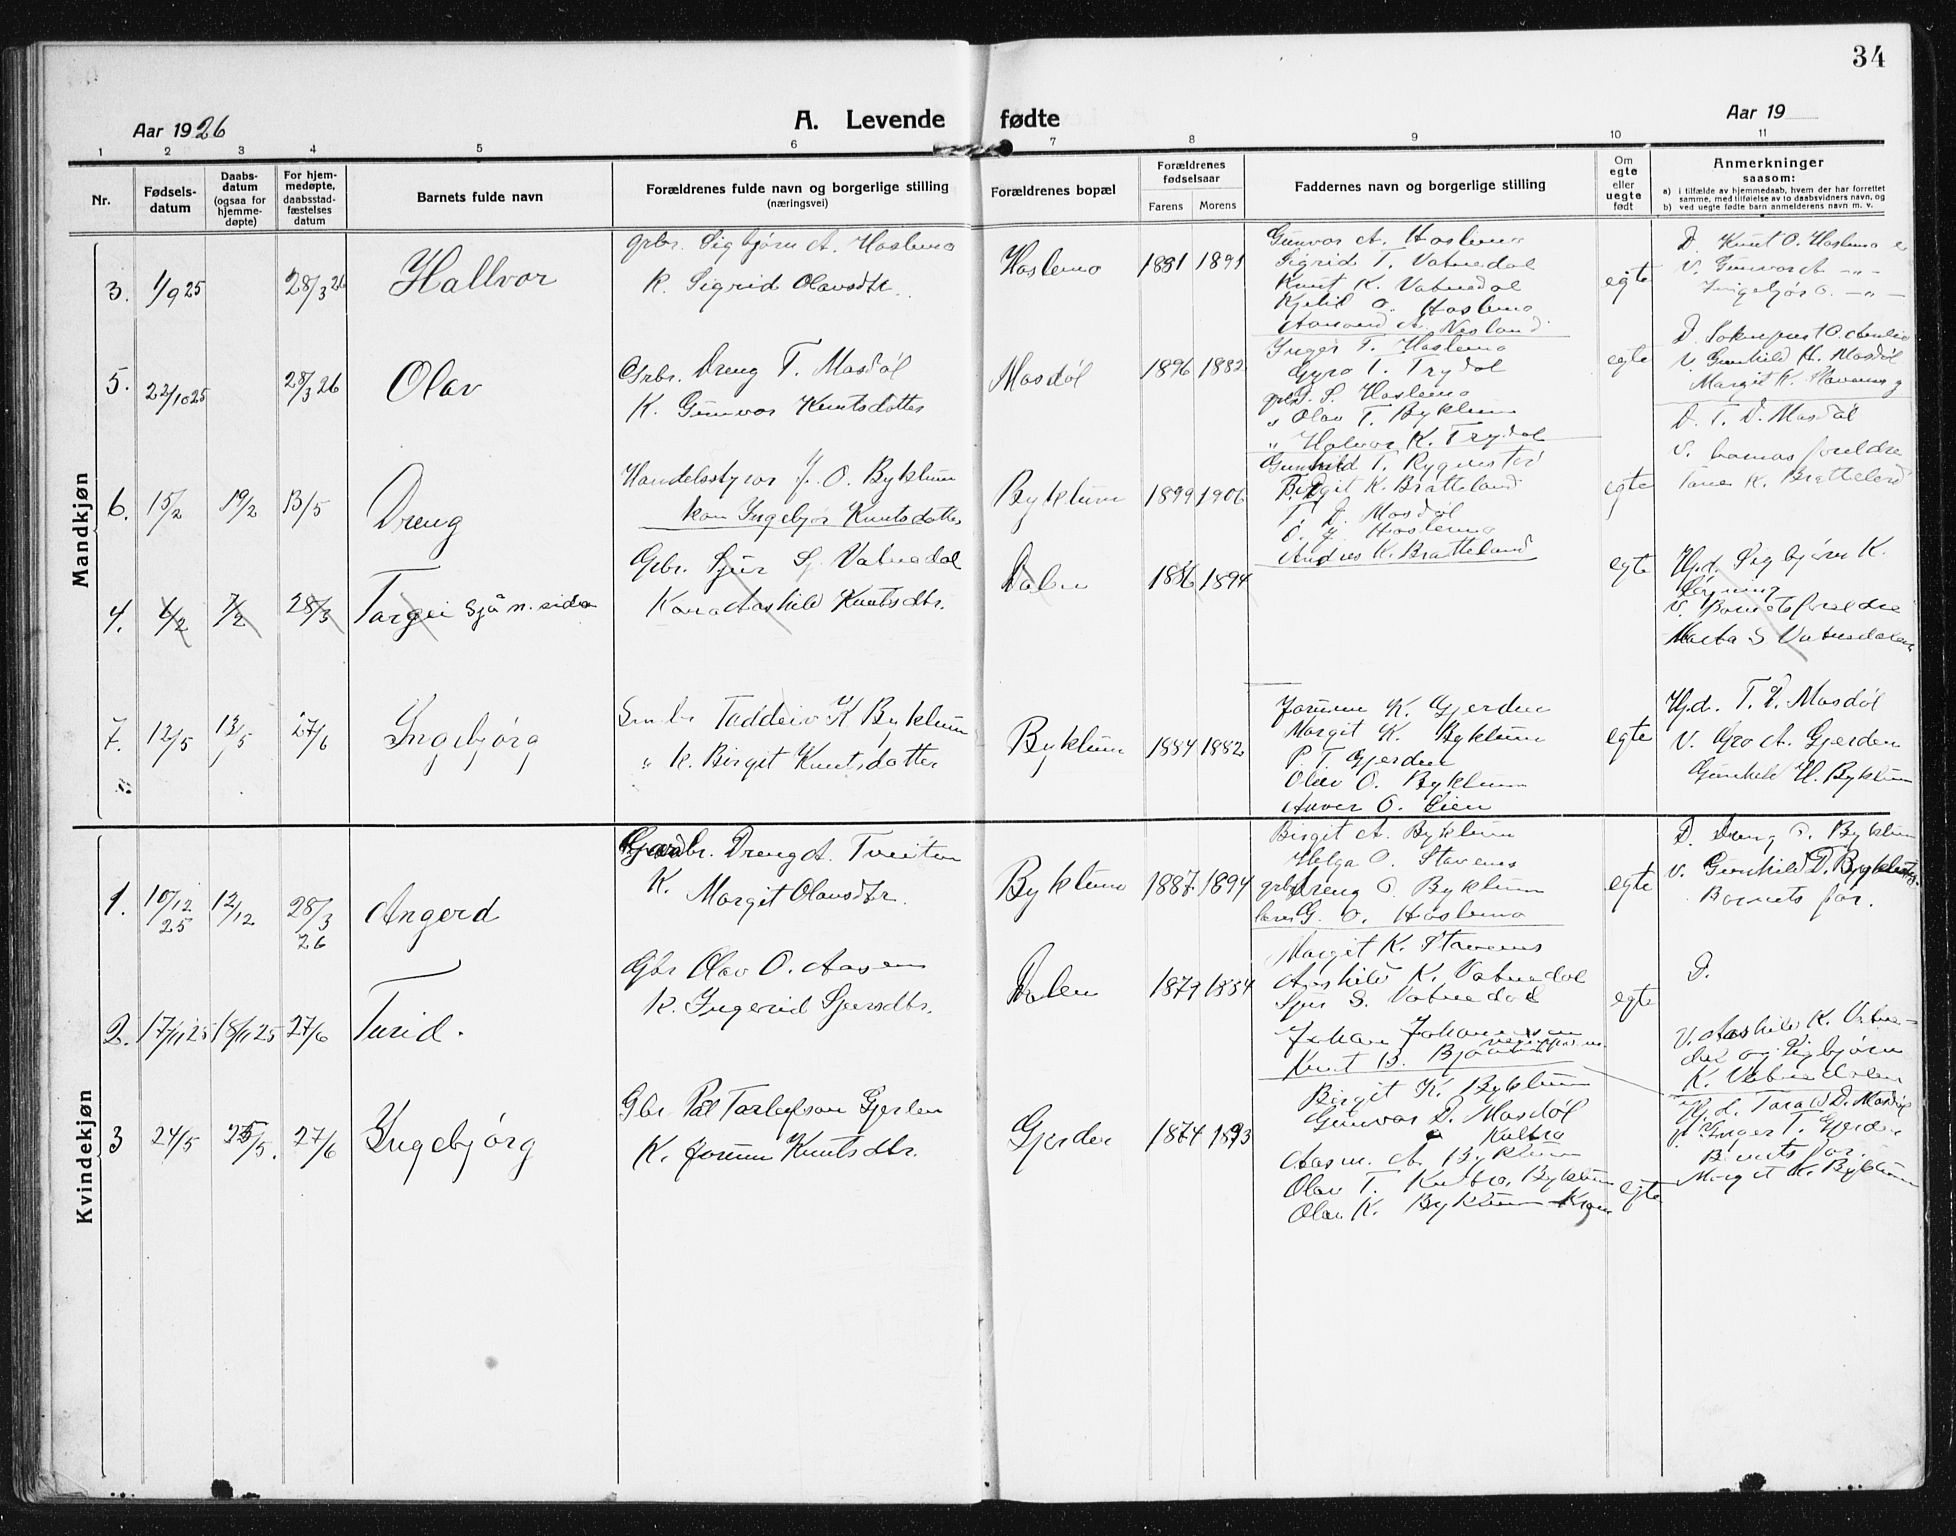 34
Aar 1926
A. Levende fødte
Aar 19
1 2 3 4 5 6 7 8 9 10 11
Nr.
Fødsels-
datum
Daabs-
datum
(ogsaa for
hjemme-
døpte)
For hjem-
medøpte,
daabsstad-
fæstelses
datum
Barnets fulde navn
Forældrenes fulde navn og borgerlige stilling
(næringsvei)
Forældrenes bopæl
Forældrenes
fødselsaar
Farens Morens
Faddernes navn og borgerlige stilling
Om
egte
eller
uegte
født
Anmerkninger
saasom:
a) i tilfælde av hjemmedaab, hvem der har forrettet
samme, med tilføielse av to daabsvidners navn, og
b) ved uegte fødte barn anmelderens navn m. v.
Mandkjøn
3. 1/9 25 28/3 26 Hallvor
grbr. Sigbjørn A. Hoslemo
k. Sigrid Olavsdtr.
Hoslemo 1881 1891
Gunvor A. Hoslemo
Sigrid T. Vatnedal
Knut K. Vatnedal
Kjetil O. Hoslemo
Aanund A. Nesland
egte
D. Knut O. Hoslemo
V. Gunvor A. -"-
Ingebjør O. -"-
5. 22/10 25 28/3 26 Olav
Grbr. Dreng T. Mosdøl
K. Gunvor Knutsdotter
Mosdøl 1896 1882
Inger T. Hoslemo
Gyro T. Trydal
S. Hoslemo
" Olav T. Byklum
" Halvor K. Trydal
egte
D.
V. Gunhild H. Mosdøl
Margit K. Stavenes
6. 15/2 19/2 13/5 Dreng
Handelsstyrer J. O. Byklum
kon Ingebjør Knutsdotter
Byklum 1899 1906
Gunhild T. Rygnestad
Birgit K. Bratteland
T. D. Mosdøl
O. J. Hoslemo
Andres K. Bratteland
egte
D. T. D. Mosdøl
V. barnets foreldre
Tone K. Bratteland
4. 6/2 7/2 28/3 Targei sjå n. side
Grbr. Sjur S. Vatnedal
Kona Aashild Knutsdtr.
Dalen 1886 1894
egte
Hjd. Sigbjørn K.
V. Barnets foreldre
S Vatnedalen
7. 12/5 13/5 27/6 Ingebjørg
Smbr Taddeiv K Byklum
" k. Birgit Knutsdotter
Byklum 1884 1882
Jorunn K. Gjerden
Margit K. Byklum
P. T. Gjerden
Olav O. Byklum
O. Lien
egte
Hjd. T. D. Mosdøl
V. Gro A. Gjerden
Gunhild H. Byklum
Kvindekjøn
1. 10/12 25 12/12 28/3 26 Angerd
Gardbr. Dreng A. Tveiten
K. Margit Olavsdtr.
Byklum 1887 1894
Birgit A. Byklum
Helga O. Stavenes
grbr Dreng O. Byklum
G. O. Hoslemo
egte
D. Dreng O. Byklum
V. Gunhild D. Byklum
Barnets far.
2. 17/11 25 18/11 25 27/6 Turid.
Gbr Olav O. Aasen
k. Ingerid Sjursdtr.
Dalen 1879 1884
Margit K. Stavenes
Aashild K. Vatnedal
Sjur S. Vatnedal
Johan Johannessen
Knut B.
egte
D.
V. Aashild K. Vatne-
dal og Sigbjørn
K. Vatnedalen
3 24/5 25/5. 27/6 Ingebjørg
Gbr. Pål Tarleifson Gjerden
K. Jorunn Knutsdtr.
Gjerden 1874 1893
Birgit K. Byklum
Gunvor D. Mosdøl
Aasm. A. Byklum
Olav T. Byklum
Olav K. Byklum
egte
Hjd. Tarald D. Mosdøl
V. Inger T. Gjerden
Barnets far.
Margit K. Byklum